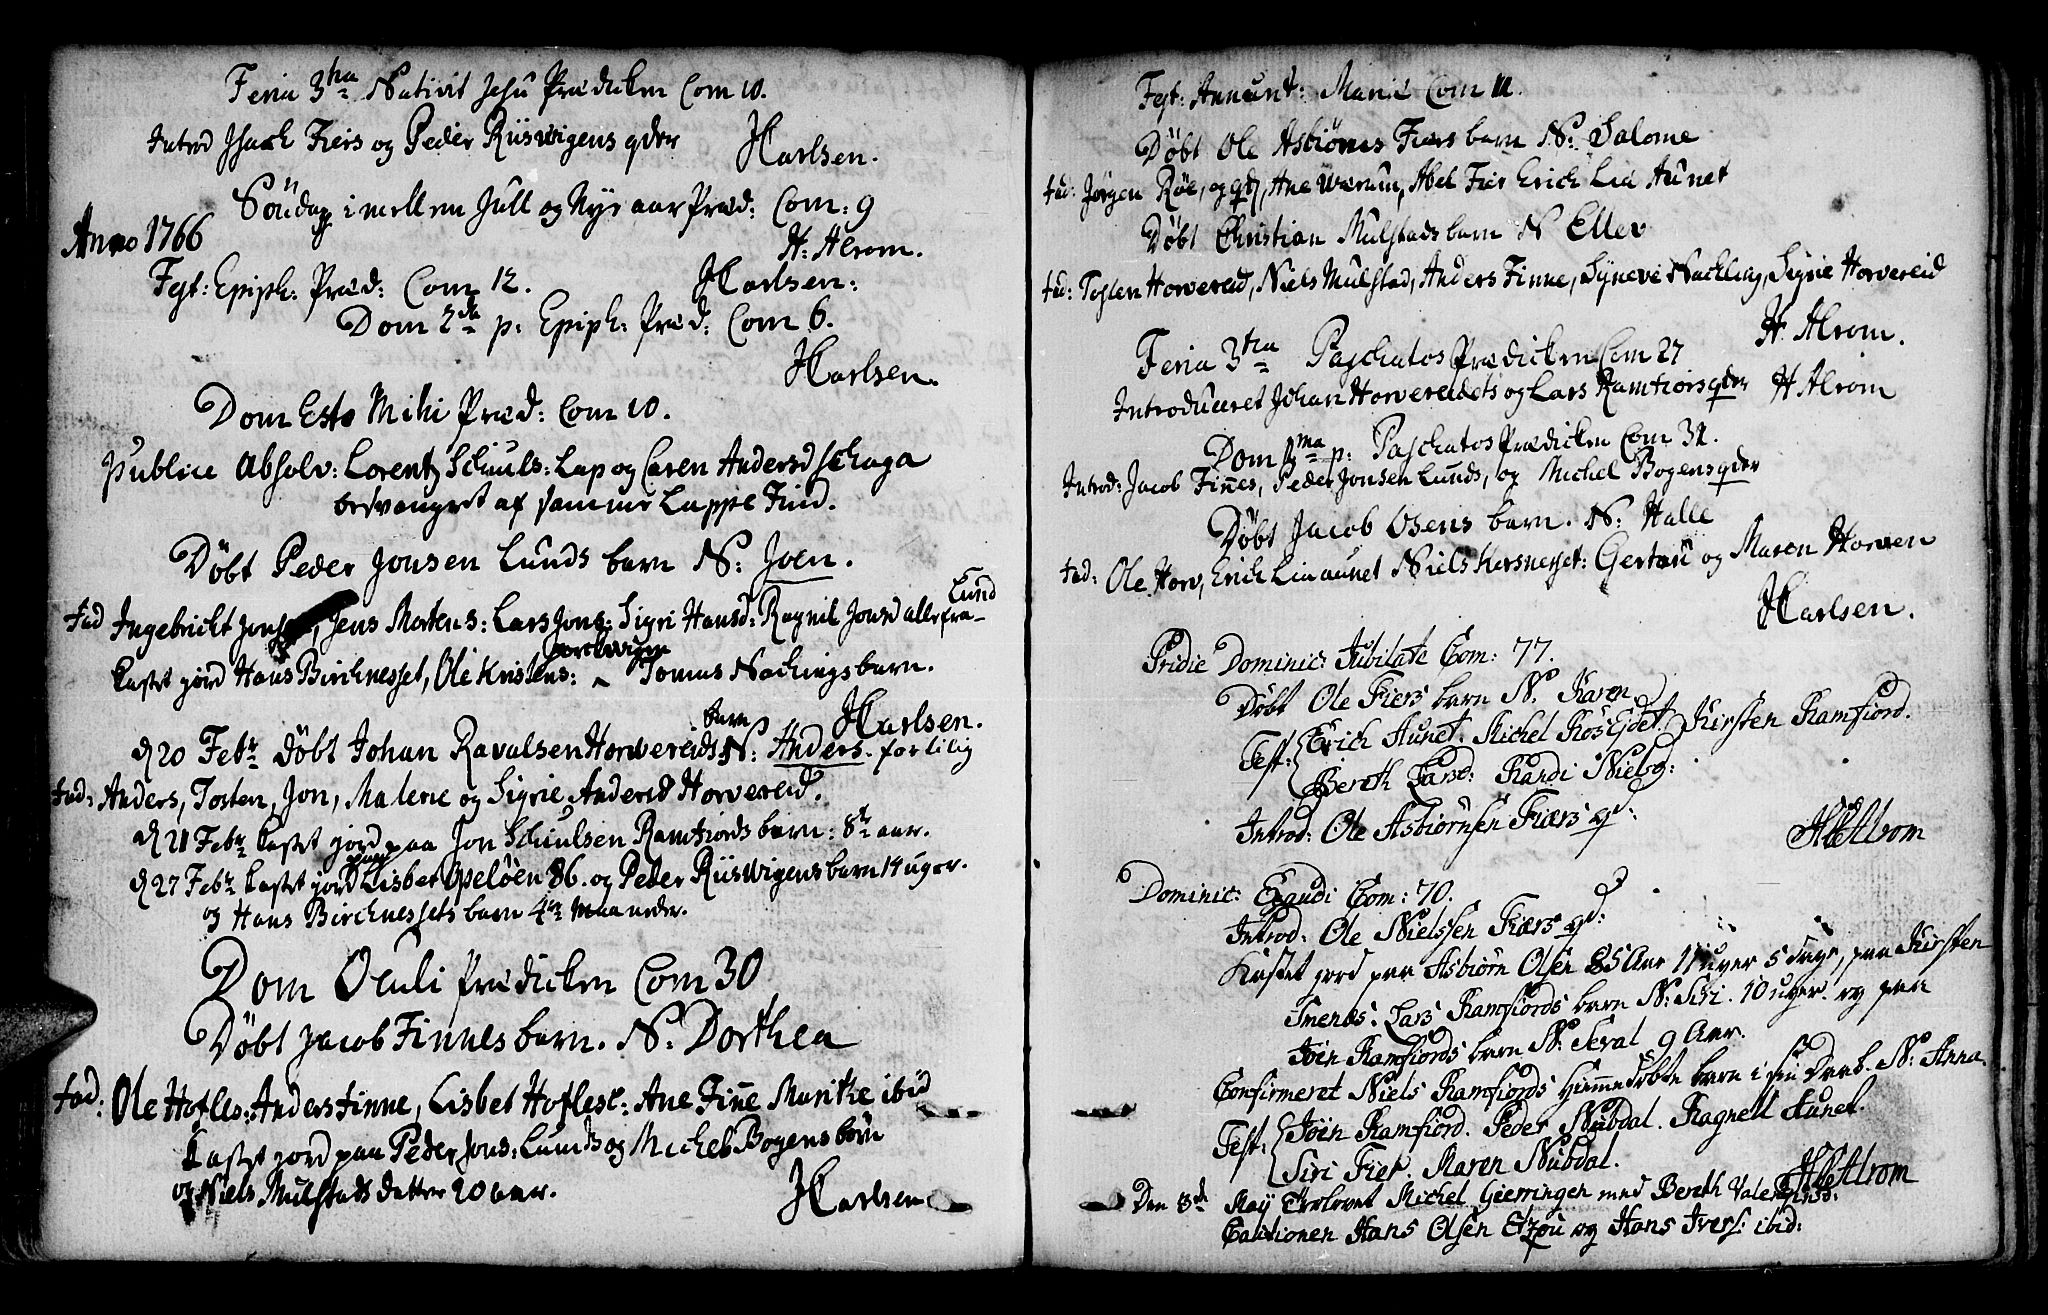 Feria 3tia Nativit Jesu Prædicken Com 10.
Introd Isach Fiers og Peder Riisvigens qder
JCarlsen.
Söndag imellem Jull og Nyt aar Præd: Com: 9
Anno 1766
H: Alrom.
Fest: Epiph: Præd: Com 12.
JCarlsen:
Dom 2da p: Epiph: Præd: Com 6.
JCarlsen.
Dom Esto Mihi Præd: Com 10.
Publice Absolv: Lorentz Schiuls: Lap og Caren Andersd
besvangret af samme Lappe Find.
Döbt Peder Jonsen Lunds barn N: Joen.
Lund
Fad Ingebricht Jens Mortens: Lars Jons: Sigri Hansd: Ragnil Jonsd alle fra
Castet jörd Hans Birchnesset, Ole Kristens: Tomas Nachings barn.
JCarlsen.
barn
d 20 Febr döbt Johan Ravalsen Horvereids N: Anders. fortilig
Fad: Anders, Tosten, Jon, Malene og Sigrie Andersd Horvereid.
d 21 Febr Castet jord paa Jon Schiulsen Ramfiords barn: 8te aar.
paa
d 27 Febr Castet jord Lisbet Opelöen 86. og Peder Riisvigens barn 14 uger.
og Hans Birchnessets barn 4re maaneder.
Dom Oculi Prædicken Com 30
Döbt Jacob Finnes barn. N: Dorthea
Fad: Ole Hofles: Anders Finne, Lisbet Hoflest: Ane Finne Marike ibid
Castet jord paa Peder Jons: Lunds og Michel Bogens börn
og Niels Mulstads datter 20 aar.
JCarlsen
Fest: Annunt: Mariæ Com 11.
Döbt Ole Asbiörnes Fiers barn N: Salome
Fad: Jörgen Röe, og qd, Ane Værum, Abel Fier Erich Lia Aunet
Döbt Christian Mulstads barn N Ellev
Fad: Tosten Horvereid, Niels Mulstad, Anders Finne, Syneve Nachling, Sigrie Horvereid
H: Alrom.
Feria 3tia Paschatos Prædicken Com 27
Introduceret Johan Horvereidets og Lars Ramfiors qder
H Alrom
Dom 1ma p: Paschatos Prædicken Com 32.
Introd: Jacob Finnes, Peder Jonsen Lunds, og Michel Bogens qder
Döbt Jacob Osens barn. N: Halle
Fad: Ole Horv, Erich Lia aunet Niels Horsnesset: Gertru og Maren Horven
JCarlsen.
Pridie Dominic: Jubilate Com: 77.
Döbt Ole Fiers barn N: Karen
Test: Erich Aunet. Michel Rosegdet. Kirsten Ramfiord.
Bereth Larsd: Randi Nielsd:
Introd: Ole Asbiörnsen Fiærs qd:
HAlrom
Dominic: Exaudi Com: 70.
Introd: Ole Nielssen Fiærs qd:
Kastet jord paa Asbiörn Olsen 85 Aar 11 uger 5 dage, paa Kirsten
Lars Ramfiords barn N: Siri. 10 uger. og paa
Joen Ramfiords barn N: Seval 9 Aar.
Confirmeret Niels Ramfiords Hiemmedöbte barn i sin Daab. N: Anna.
Test: Joen Ramfiord. Peder Nubdal. Ragnell Aunet.
Siri Fier. Maren Nubdal.
HAlrom
Den 3d May Trolovet Michel Gierringen med Bereth Valentinsd:
Cautionen Hans Olsen Etzou og Hans Ivers: ibid: